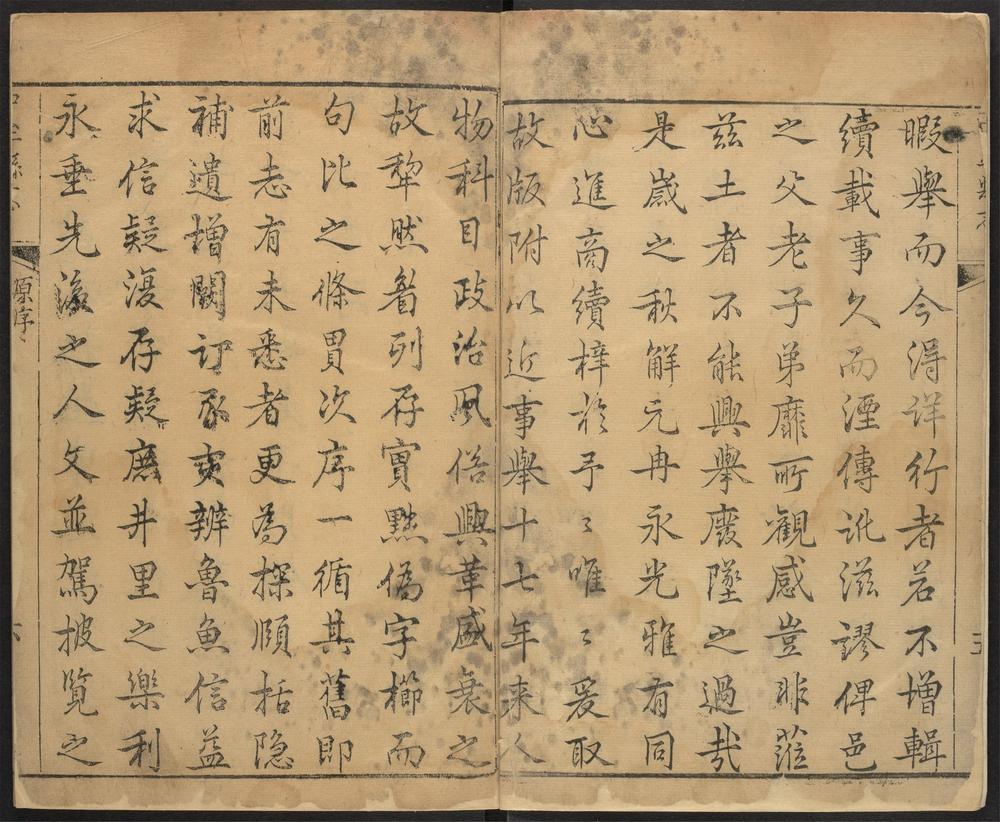 暇舉而今得詳行者若不增輯
續載事久而湮傳訛滋謬俾邑
之父老子弟靡所觀感豈非蒞
茲土者不能興舉廢墜之過哉
是歲之秋解元冉永光雅有同
心進商續梓於予〻唯〻爰取
故版附以近事舉十七年來人
物科目政治風俗興革盛衰之
故犂然着列存實黜偽字櫛而
句比之條貫次序一循其舊即
前志有未悉者更為探頤括隐
補遺增闕訂豕亥辨魯魚信益
求信疑復存疑庶井里之樂利
永垂先後之人文並駕披覽之
原序